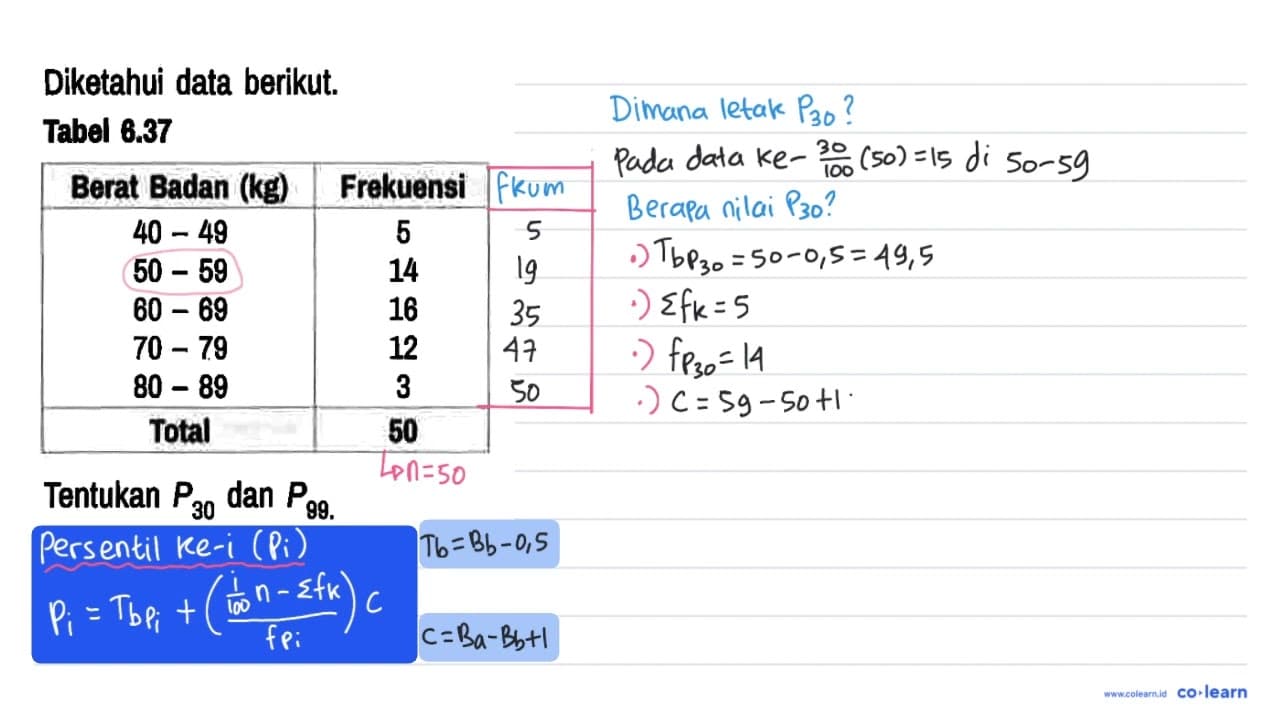 Diketahui data berikut.
Tabel 6.37
Berat Badan (kg) Frekuensi fkum
40 – 49 5 5
50 – 59 14 19
60 – 69 16 35
70 – 79 12 47
80 – 89 3 50
Total 50
↳ n=50
Tentukan P30 dan P99.
Persentil ke-i (Pi)
Pi = Tbpi + ((i/100 n - Σfk)/fpi) C
Tb = Bb - 0,5
C = Ba - Bb + 1
Dimana letak P30?
Pada data ke- 30/100 (50) = 15 di 50-59
Berapa nilai P30?
•) TbP30 = 50 - 0,5 = 49,5
•) Σfk = 5
•) fP30 = 14
•) C = 59 - 50 + 1
www.colearn.id co·learn